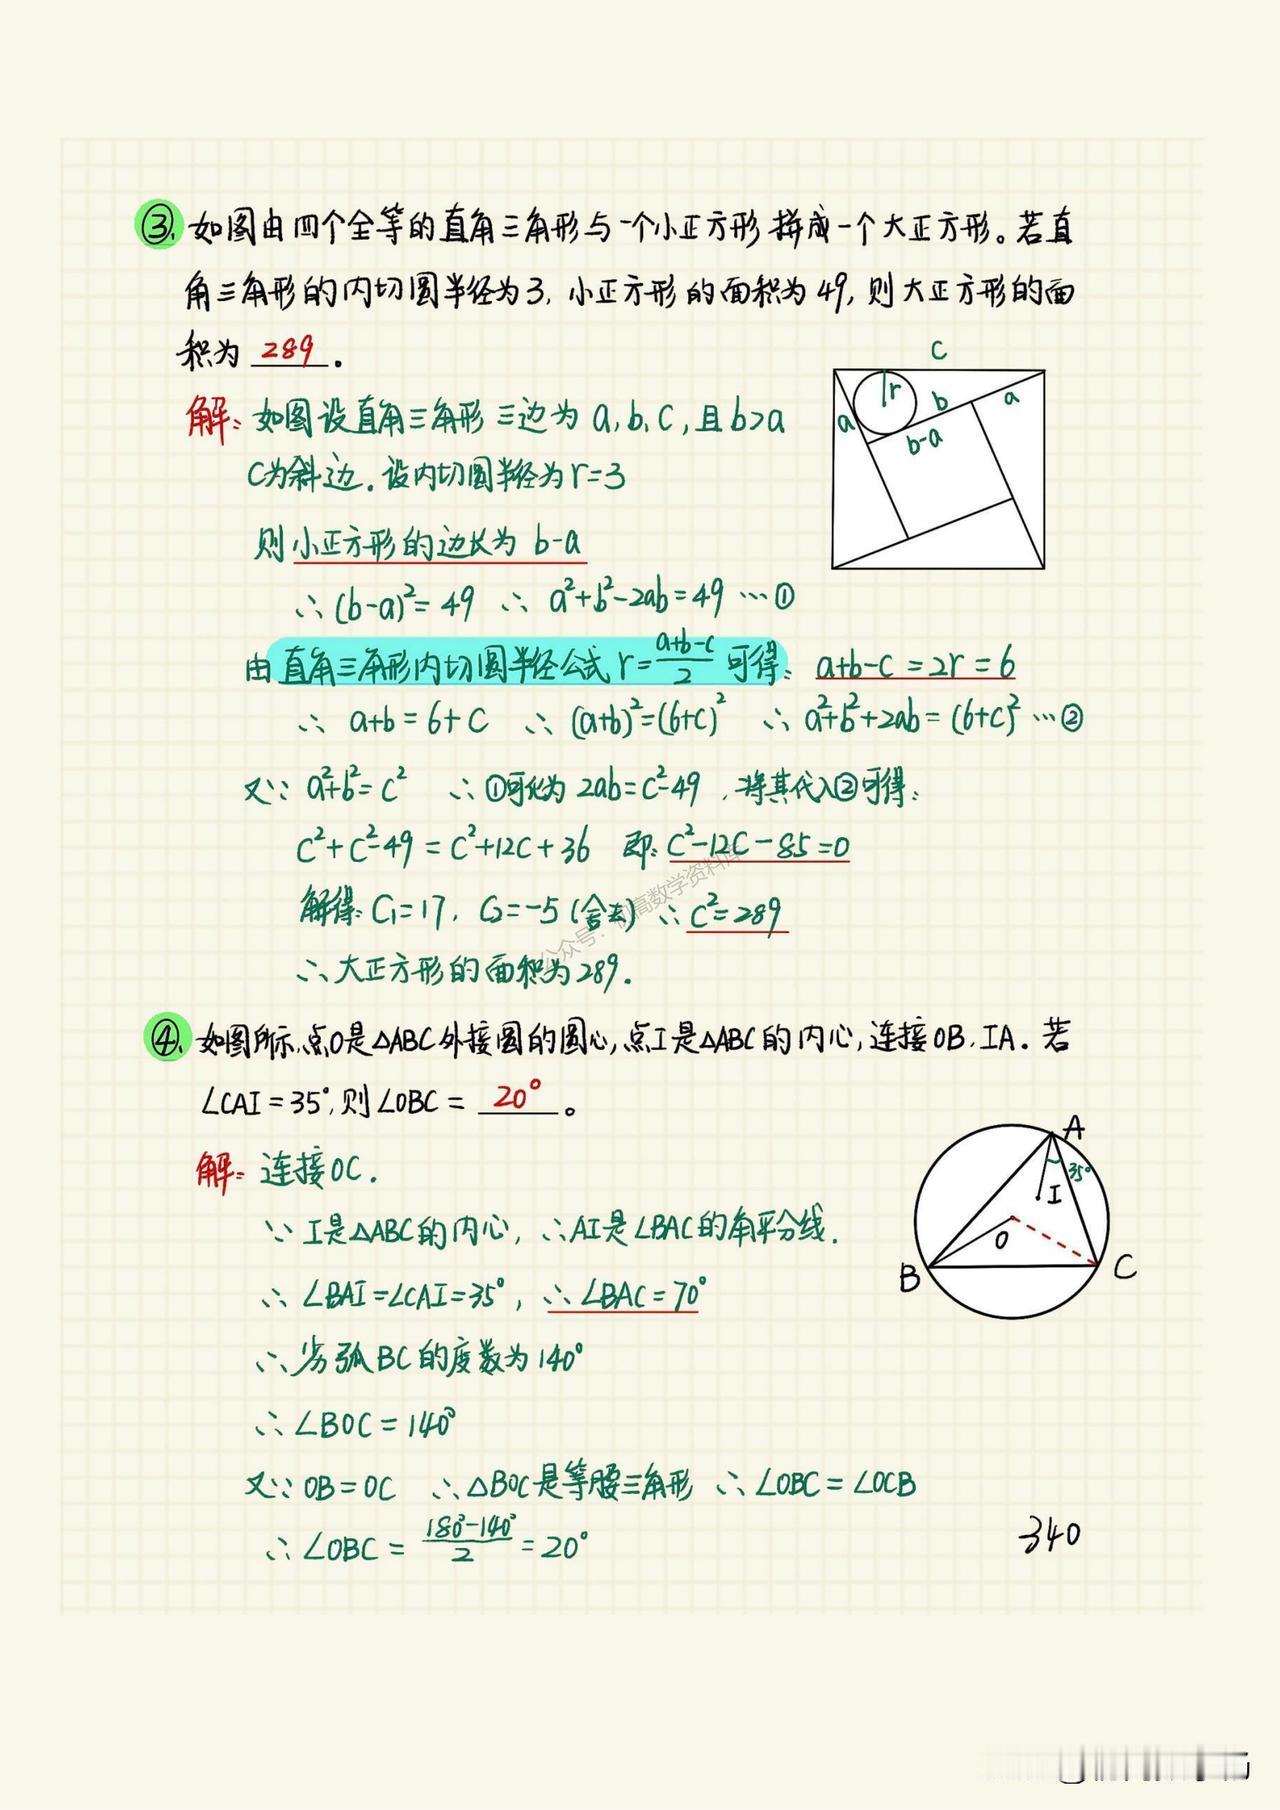 ③. 如图由四个全等的直角三角形与一个小正方形拼成一个大正方形。若直
角三角形的内切圆半径为3, 小正方形的面积为49, 则大正方形的面
积为 289 .
C
r
b
a
a
b-a
解: 如图设直角三角形三边为 a, b, C, 且 b>a
C为斜边. 设内切圆半径为 r=3
则小正方形的边长为 b-a
∴ (b-a)²=49 ∴ a²+b²-2ab=49 …①
由直角三角形内切圆半径公式 r=\frac{a+b-c}{2} 可得: a+b-c=2r=6
∴ a+b=6+C ∴ (a+b)²=(6+C)² ∴ a²+b²+2ab=(6+C)² …②
又∵ a²+b²=C² ∴ ①可化为 2ab=C²-49 , 将其代入②可得:
C²+C²-49=C²+12C+36 即: C²-12C-85=0
解得: C₁=17, C₂=-5 (舍去) ∴ C²=289
∴ 大正方形的面积为289.
公众号:初高数学资料库
④. 如图所示,点O是△ABC外接圆的圆心,点I是△ABC的内心,连接OB, IA. 若
∠CAI=35°,则∠OBC= 20° 。
A
35°
I
O
B
C
解: 连接OC.
∵ I是△ABC的内心, ∴AI是∠BAC的角平分线.
∴ ∠BAI=∠CAI=35°, ∴∠BAC=70°
∴ 劣弧BC的度数为140°
∴ ∠BOC=140°
又∵ OB=OC ∴△BOC是等腰三角形 ∴∠OBC=∠OCB
∴ ∠OBC=\frac{180°-140°}{2}=20°
340